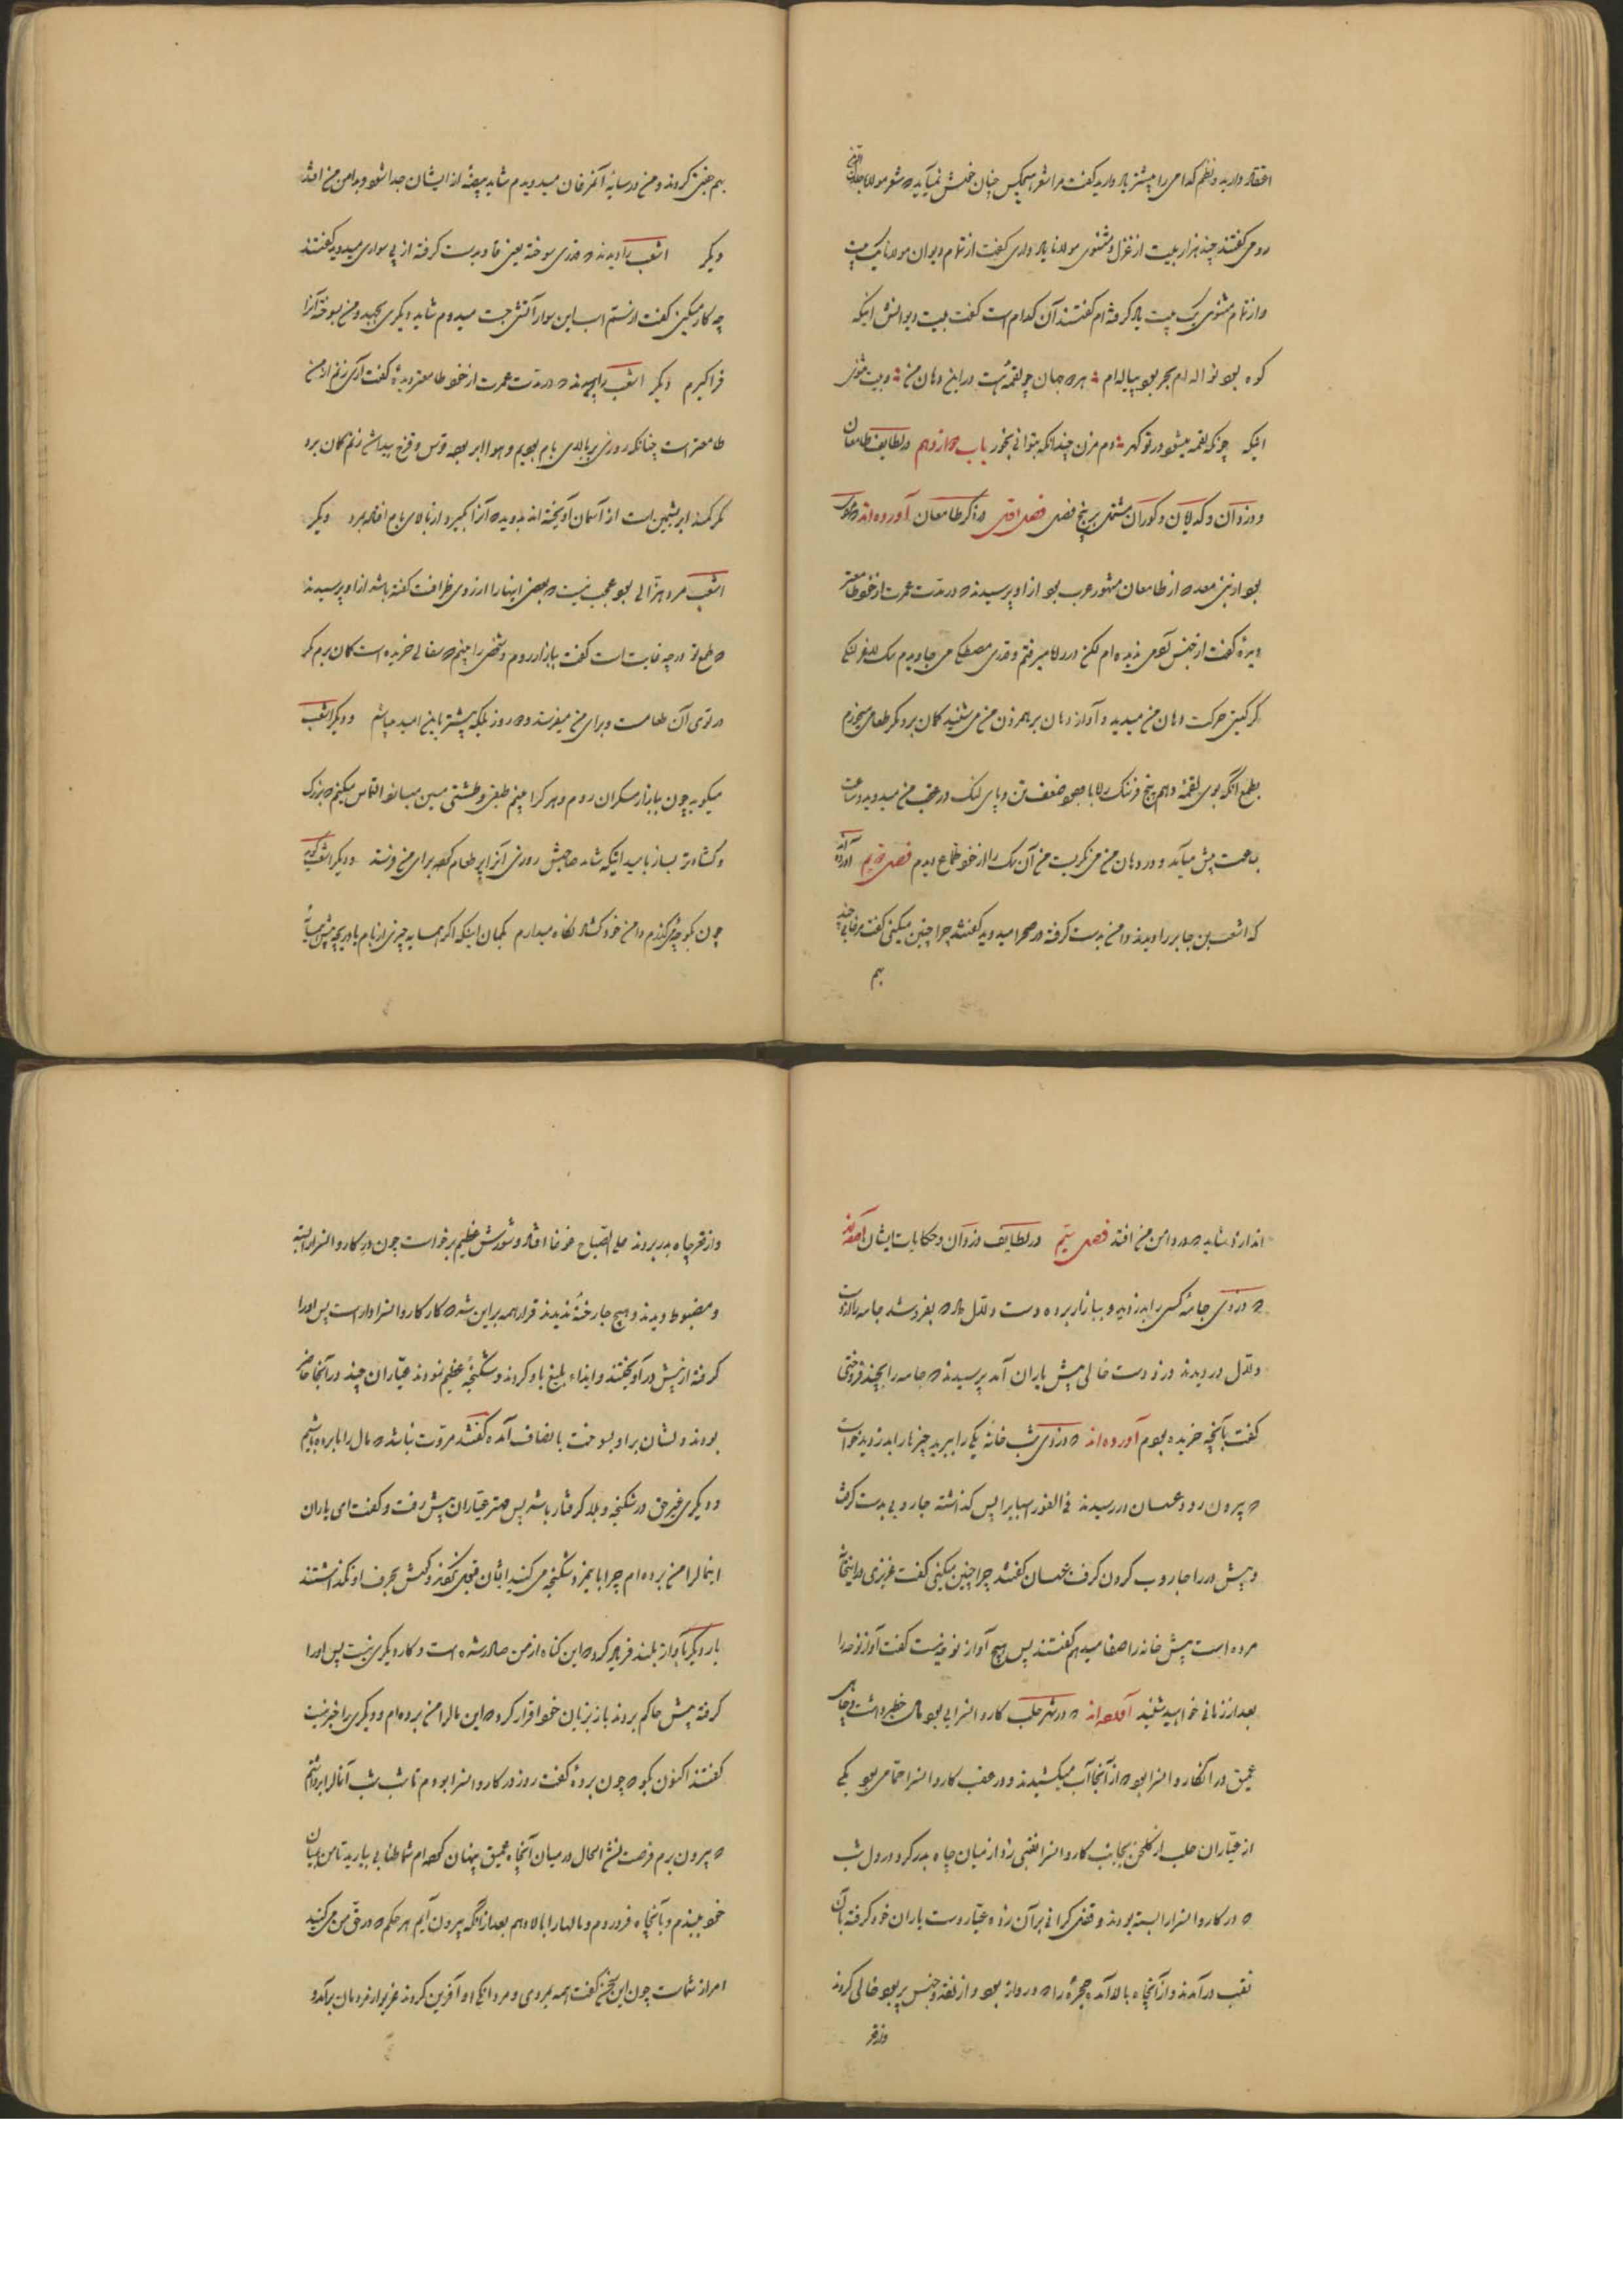 اعتقاد دارید و نظم کدامی را بیشتر یاد دارید گفت مرا شعر هیچکس چنان خوش نمی‌آید که شعر مولانا جلال الدین
رومی گفتند چند هزار بیت از غزل و مثنوی مولانا یاد داری گفت از تمام دیوان مولانا یک بیت
و از تمام مثنوی یک بیت یاد گرفته‌ام گفتند آن کدام است گفت بیت دیوانش اینکه
کوه بود نواله‌ام بحر بود پیاله‌ام هر دو جهان چو لقمه‌ئیست در این دهان من و بیت مثنوی
اینکه چونکه لقمه میشود در تو گهر دم مزن چندانکه بتوانی بخور باب دوازدهم در لطایف طامعان
و دزدان و گدایان و کوران مشتمل بر پنج فصل فصل اول در ذکر طامعان آورده‌اند که
بود از بنی معد که از طامعان مشهور عرب بود از او پرسیدند که در مدت عمرت از خود طامع‌تر
دیدهٔ گفت از جنس آدمی ندیده‌ام لیکن در راه میرفتم و قدری مصطکی می‌جاویدم سگ لاغر لنگی
گرگین حرکت دهان من میدید و آواز دهان برهم زدن من می‌شنید گمان برد مگر طعامی میخورم
بطمع آنکه بوی لقمهٔ دهم پنج فرسنگ راه با وجود ضعف تن و پای لنگ در عقب من میدوید و ساعت
بساعت پیش میآمد و در دهان من می‌نگریست من آن سگ را از خود طامع‌تر دیدم فصل دویم آورده‌اند
که اشعب بن جابر را دیدند دامن بدست گرفته در صحرا میدوید گفتند چرا چنین میکنی گفت مرغابی چند
بهم
بهم جفتی کردند و من در سایهٔ آن مرغان میدویدم شاید بیضهٔ از ایشان جدا شود و بدامن من افتد
دیگر اشعب را دیدند که قدری سوخته یعنی قاو بدست گرفته از پی سواری میدوید گفتند
چه کار میکنی گفت از سم اسب این سوار آتش جست میدوم شاید دیگری بجهد و من بسوخته آنرا
فراگیرم دیگر اشعب را پرسیدند که در مدت عمرت از خود طامع‌تر دیدهٔ گفت آری زنم از من
طامع‌تر است چنانکه روزی بر بالای بام بودیم و هوا ابر بود قوس و قزح پیدا شد زنم گمان برد
که مگر کمند ابریشمین است از آسمان آویخته‌اند بدوید که آنرا بگیرد از بالای بام افتاد و بمرد دیگر
اشعب مرد هزالی بود عجب نیست که بعضی اینها را از روی ظرافت گفته باشد از او پرسیدند
که طمع تو درجه غایت است گفت ببازار روم و شخصی را بینم که سفالی خریده است گمان برم که
در توی آن طعامست و برای من میفرستد و هر روز بلکه بیشتر باین امید میباشم و دیگر اشعب
میگوید چون ببازار مسگران روم و هر کرا بینم طبقی و طشتی مسین میسازد التماس میکنم که بزرگ
و گشاده‌تر بساز بامید اینکه شاید صاحبش روزی آنرا پر طعام کرده برای من فرستد و دیگر اشعب گوید
چون بکوچه گذرم دامن خود گشاده نگاه میدارم بگمان اینکه اگر همسایه چیزی از بام یا دریچه پیش همسایهٔ
اندازد شاید که در دامن من افتد فصل سیم در لطایف دزدان و حکایات ایشان آورده‌اند
که دزدی جامهٔ کسی را بدزدید و ببازار برده دست دلال داد که بفروشد جامه را از دست
دلال دزدیدند دزد دست خالی پیش یاران آمد پرسیدند که جامه را بچند فروختی
گفت بآنچه خریده بودم آورده‌اند که دزدی شب خانهٔ یکی را ببرید چیزها را بدزدید خواست
که بیرون رود عسسان در رسیدند فی الفور اسباب را پس گذاشته جاروبی بدست گرفت
و پیش در را جاروب کردن گرفت عسسان گفتند چرا چنین میکنی گفت عزیزی در اینخانه
مرده است پیش خانه را صفا میدهم گفتند پس هیچ آواز نوحه نیست گفت آواز نوحه را
بعد از زمانی خواهید شنید آورده‌اند که در شهر حلب کاروانسرایی بود مال خطیر داشت و چاهی
عمیق در آن کاروانسرا بود که از آنجا آب میکشیدند و در عقب کاروانسرا حمامی بود یکی
از عیاران حلب از گلخن بجانب کاروانسرا نقبی زد از میان چاه بدر کرد در دل شب
که در کاروانسرا را بسته بودند و قفل گرانی بر آن زده عیار دست یاران خود گرفته بآن
نقب درآمدند و از آنچاه بالا آمد حجرهٔ را که در دواز بود و از نقد و جنس پر بود خالی کردند
و از قعر
و از قعر چاه بدر بردند علی الصباح غوغا افتاد و شورش عظیم برخواست چون در کاروانسرا را بسته
و مضبوط دیدند و هیچ جا رخنهٔ ندیدند قرار همه بر این شد که کار کاروانسرادار است پس او را
گرفته از پیش درآویختند و ایذاء بلیغ باو کردند و شکنجهٔ عظیم نمودند عیاران چند در آنجا حاضر
بودند دلشان بر او بسوخت بانصاف آمده گفتند مروت نباشد که مال را ما برده باشیم
و دیگری بغیر حق در شکنجه و بلا گرفتار باشد پس مهتر عیاران پیش رفت و گفت ای یاران
اینمال را من برده‌ام چرا با این مرد شکنجه می‌کنید ایشان قبول نکردند و گوش بحرف او نگذاشتند
بار دیگر بآواز بلند فریاد کرد که این گناه از من صادر شده است و کار دیگری نیست پس او را
گرفته پیش حاکم بردند باز بزبان خود اقرار کرد که این مال را من برده‌ام و دیگری را خبر نیست
گفتند اکنون بگو که چون بردهٔ گفت روز در کاروانسرا بودم تا شب شب آنمال را برداشتم
که بیرون برم فرصت نشد الحال در میان آنچاه عمیق پنهان کرده‌ام شما طنابی بیارید تا من بمیان
خود ببندم و بآنچاه فرو روم و مالها را بالا دهم بعد از آنکه بیرون آیم هر حکم که در حق من می‌کنید
امر از شماست چون این سخن گفت همه بمردی و مردانگی او آفرین کردند غریو از مردمان برآمد و